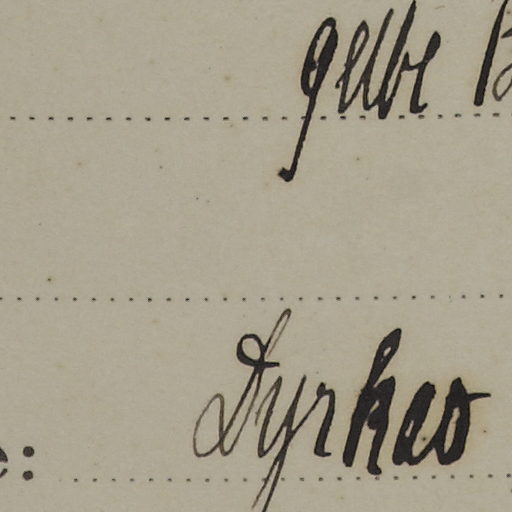 gelbe B
e: Dyrkes